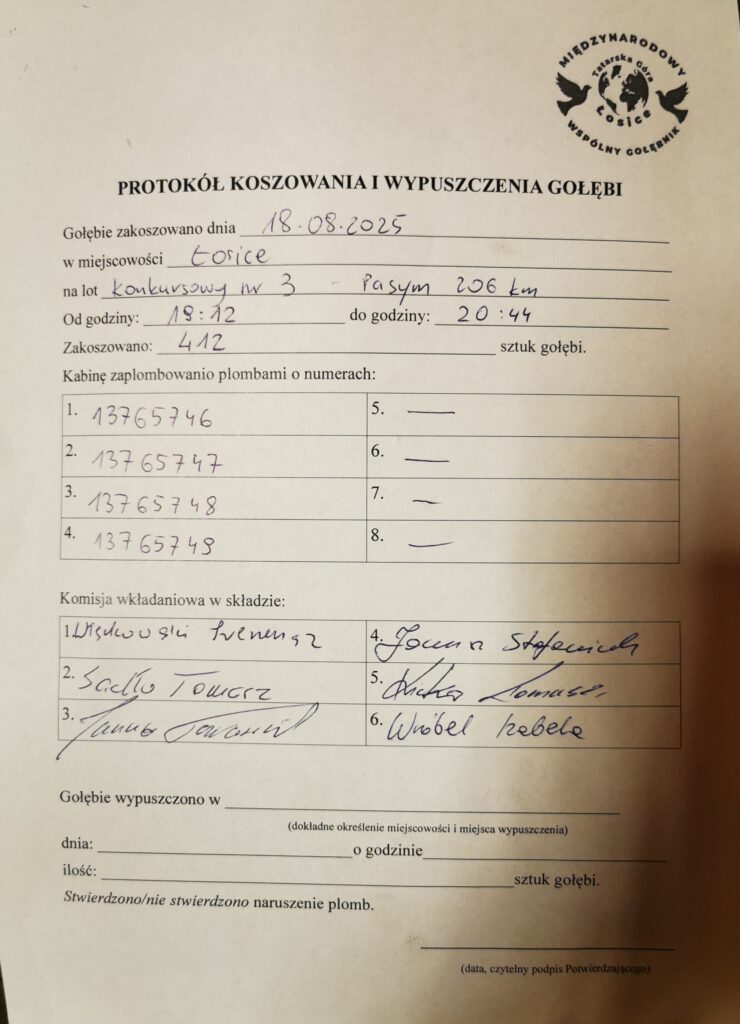 MIĘDZYNARODOWY
Tatarska Góra
Łosice
WSPÓLNY GOŁĘBNIK
PROTOKÓŁ KOSZOWANIA I WYPUSZCZENIA GOŁĘBI
Gołębie zakoszowano dnia 18.08.2025
w miejscowości Łosice
na lot konkursowy nr 3 - Pasym 206 km
Od godziny: 19:12 do godziny: 20:44
Zakoszowano: 412 sztuk gołębi.
Kabinę zaplombowanio plombami o numerach:
1. 13765746 5. —
2. 13765747 6. —
3. 13765748 7. —
4. 13765749 8. —
Komisja wkładaniowa w składzie:
1. 4.
2. Sadło Tomasz 5.
3. 6. Wróbel Izabela
Gołębie wypuszczono w
(dokładne określenie miejscowości i miejsca wypuszczenia)
dnia: o godzinie
ilość: sztuk gołębi.
Stwierdzono/nie stwierdzono naruszenie plomb.
(data, czytelny podpis Potwierdzającego)